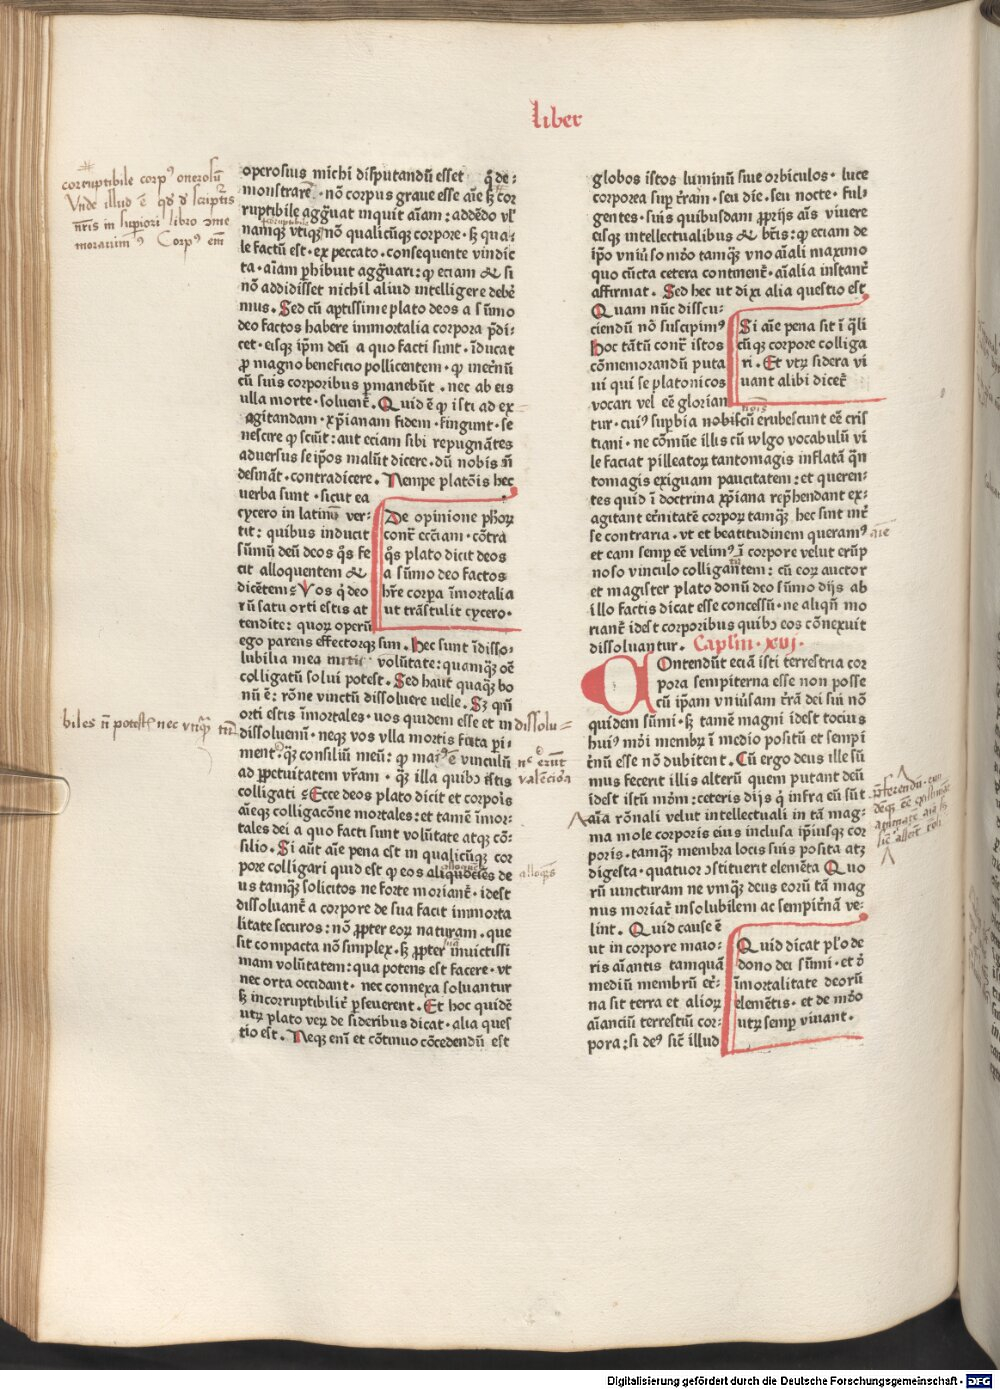 liber
corruptibile corpꝰ onerosū
Vnde illud ē qd d scriptis
nr̄is in supiori libro ɔme
morauimꝰ Corpꝰ em̄
operosius michi disputandū esset q̄ de:
monstrarē · nō corpus graue esse aīe ꝫ cor
ruptibile aggrauat inquit aīam: addēdo vl̕
namqꝫ vtiqꝫ nō qualicūqꝫ corpore · ꝫ qua/
le factū est · ex peccato · consequente vindic
ta · aīam phibuit aggrauari: qp eciam & si
nō addidisset nichil aliud intelligere debē
mus · Sed cū aptissime plato deos a sūmo
deo factos habere immortalia corpora pdi:
cet · eisqꝫ ipm deū a quo facti sunt · īducat
p magno beneficio pollicentem · qp inet̄nū
cū suis corporibus pmanebūt · nec ab eis
ulla morte · soluent̄ · Quid ē qp isti ad ex
agitandam · xp̄ianam fidem · fingunt · se
nescire qp sciūt: aut eciam sibi repugnātes
aduersus se ipos malūt dicere · dū nobis n̄
desināt · contradicere · Nempe platōis hec
uerba sunt · sicut ea
cycero in latinū ver:
tit: quibus inducit
sūmū deū deos q̄s fe
cit alloquentem &
dicētem: Vos q̄ deo
rū satu orti estis at
tendite: quoꝝ operū
De opinione phoꝝ
contr̄ eccīam · cōtra
q̄s plato dicit deos
a sūmo deo factos
hr̄e corpa īmortalia
ut trāstulit cycero ·
ego parens effectorqꝫ sum · Hec sunt īdisso:
lubilia mea volūtate: quamqꝫ oē
colligatū solui potest · Sed haut quaqꝫ bo
nū ē: rōne vinctū dissoluere uelle · Sꝫ qm̄
orti estis īmortales · uos quidem esse et in
dissoluem̄ · neqꝫ vos vlla mortis fata pi:
ment · qꝫ consiliū meū: qp maiꝰ ē vinculū
ad ppetuitatem vr̄am · qꝫ illa quibꝫ istis
colligati: Ecce deos plato dicit et corpois
aīeqꝫ colligacōne mortales: et tamē īmor:
tales dei a quo facti sunt volūtate atqꝫ cō:
silio · Si aūt aīe pena est in qualicūqꝫ cor
pore colligari quid est qp eos de
us tamqꝫ solicitos ne forte moriant̄ · idest
dissoluant̄ a corpore de sua facit immorta
litate securos: nō ppter eoꝝ naturam · que
sit compacta nō simplex · ꝫ ppter inuictissi
mam volūtatem: qua potens est facere · vt
nec orta occidant · nec connexa soluantur
ꝫ incorruptibilit̄ pseuerent · Et hoc quidē
utꝝ plato veꝝ de sideribus dicat · alia ques
tio est · Neqꝫ enī et cōtinuo cōcedendū est
dissolu=
valēciora
globos istos luminū siue orbiculos · luce
corporea sup tr̄am · seu die · seu nocte · ful/
gentes · suis quibusdam pprijs aīs viuere
eisqꝫ intellectualibus & btīs: qp eciam de
ipo vniuso mōo tamqꝫ vno aīali maximo
quo cūcta cetera continent̄ · aīalia instant̄
affirmat · Sed hec ut dixi alia questio est
Quam nūc discu:
ciendū nō suscipimꝰ
hoc tātū contr̄ istos
cōmemorandū puta
ui qui se platonicos
vocari vel eē glorian
Si aīe pena sit ī q̄li
cūqꝫ corpore colliga
ri · Et vtꝝ sidera vi
uant alibi dicet̄
tur · cuiꝰ supbia nobiscū erubescunt eē cris
tiani · ne cōmūe illis cū wlgo vocabulū vi
le faciat pilleatoꝝ tantomagis inflatā q̄n
tomagis exiguam paucitatem: et queren:
tes quid ī doctrina xp̄iana rephendant ex:
agitant et̄nitatē corpoꝝ tamqꝫ hec sint int̄
se contraria · vt et beatitudinem queramꝰ
et eam semp eē velimꝰ ī corpore velut erūp
noso vinculo colligantem: cū eoꝝ auctor
et magister plato donū deo sūmo dijs ab
illo factis dicat esse concessū · ne aliqn̄ mo
riant̄ idest corporibus quibꝫ eos cōnexuit
dissoluantur · Caplm · xvj ·
COntendūt eciā isti terrestria cor
pora sempiterna esse non posse
cū ipam vniusam tr̄ā dei sui nō
quidem sūmi · ꝫ tamē magni idest tocius
huiꝰ mōi membꝝ ī medio positū et sempi
tn̄ū esse nō dubitent · Cū ergo deus ille sū
mus fecerit illis alterū quem putant deū
idest istū mōm: ceteris dijs q̄ infra eū sūt
aīa rōnali velut intellectuali in tā mag/
ma mole corporis eius inclusa ipiusqꝫ cor
poris · tamqꝫ membra locis suis posita atqꝫ
digesta · quatuor ɔstituerit elemēta Quo
rū iuncturam ne vmqꝫ deus eorū tā mag
nus moriat̄ insolubilem ac sempit̄nā ve:
lint · Quid cause ē
ut in corpore maio:
ris aīantis tamquā
mediū membrū et̄:
na sit terra et alioꝝ
aīanciū terrestriū cor:
pora: si deꝰ sic̄ illud
Quid dicat plo de
dono dei sūmi · et d
īmortalitate deorū
elemētis · et de mōo
utꝝ semp viuant ·
Digitalisierung gefördert durch die Deutsche Forschungsgemeinschaft - DFG